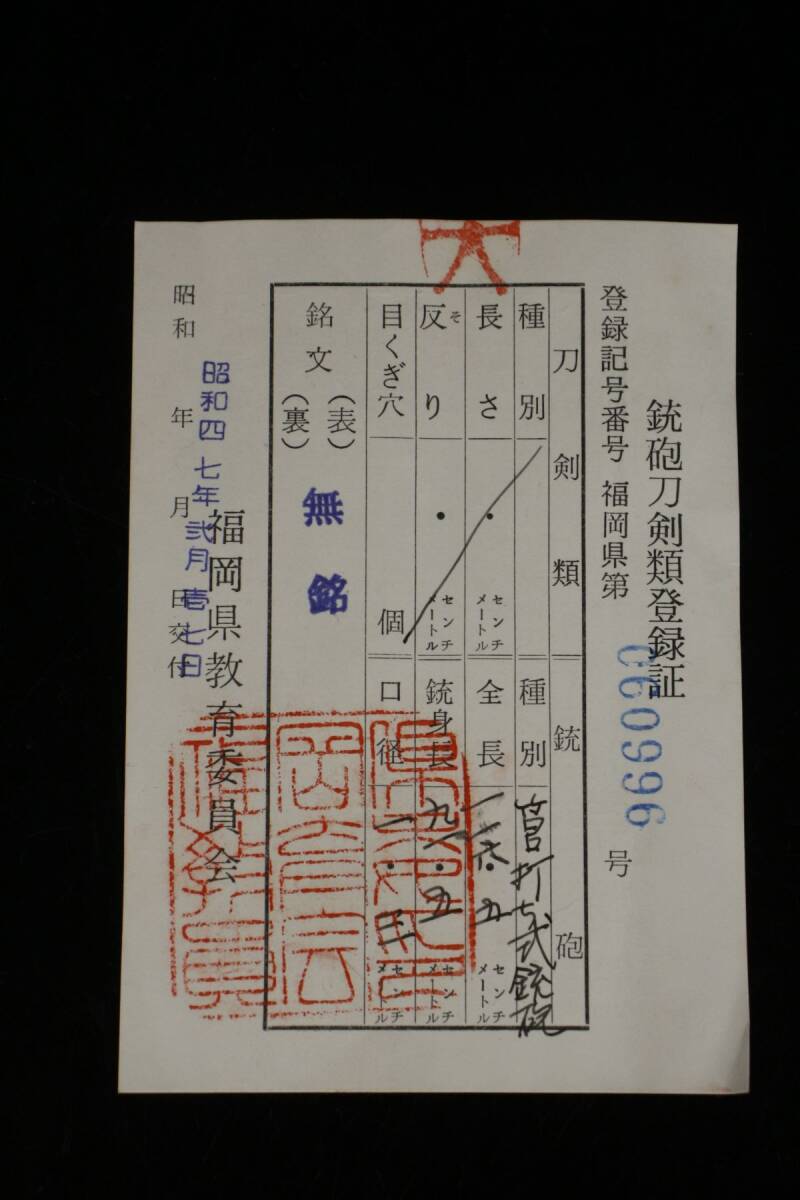 銃砲刀剣類登録証
登録記号番号 福岡県第 C60996 号
刀剣類
種別
長さ ・ センチメートル
反り ・ センチメートル
そ
目くぎ穴 個
銃砲
種別
全長 一二六・五 センチメートル
銃身長 九一・五 センチメートル
口径 一・ センチメートル
銘文
(表)
(裏)
無銘
昭和 年 月 日交付
昭和四七年弐月壱七日
福岡県教育委員会